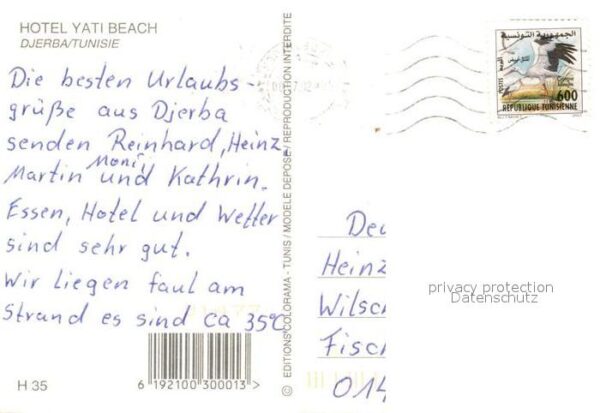 HOTEL YATI BEACH
DJERBA/TUNISIE
Die besten Urlaubs-
grüße aus Djerba
senden Reinhard, Heinz,
Moni,
Martin und Kathrin.
Essen, Hotel und Wetter
sind sehr gut.
Wir liegen faul am
Strand es sind ca 35°C
H 35
6 192100 300013 >
© EDITIONS COLORAMA - TUNIS / MODELE DEPOSE / REPRODUCTION INTERDITE
الجمهورية التونسية
600
REPUBLIQUE TUNISIENNE
Deu
Heinz
Wilsc
Fisch
014
privacy protection
Datenschutz